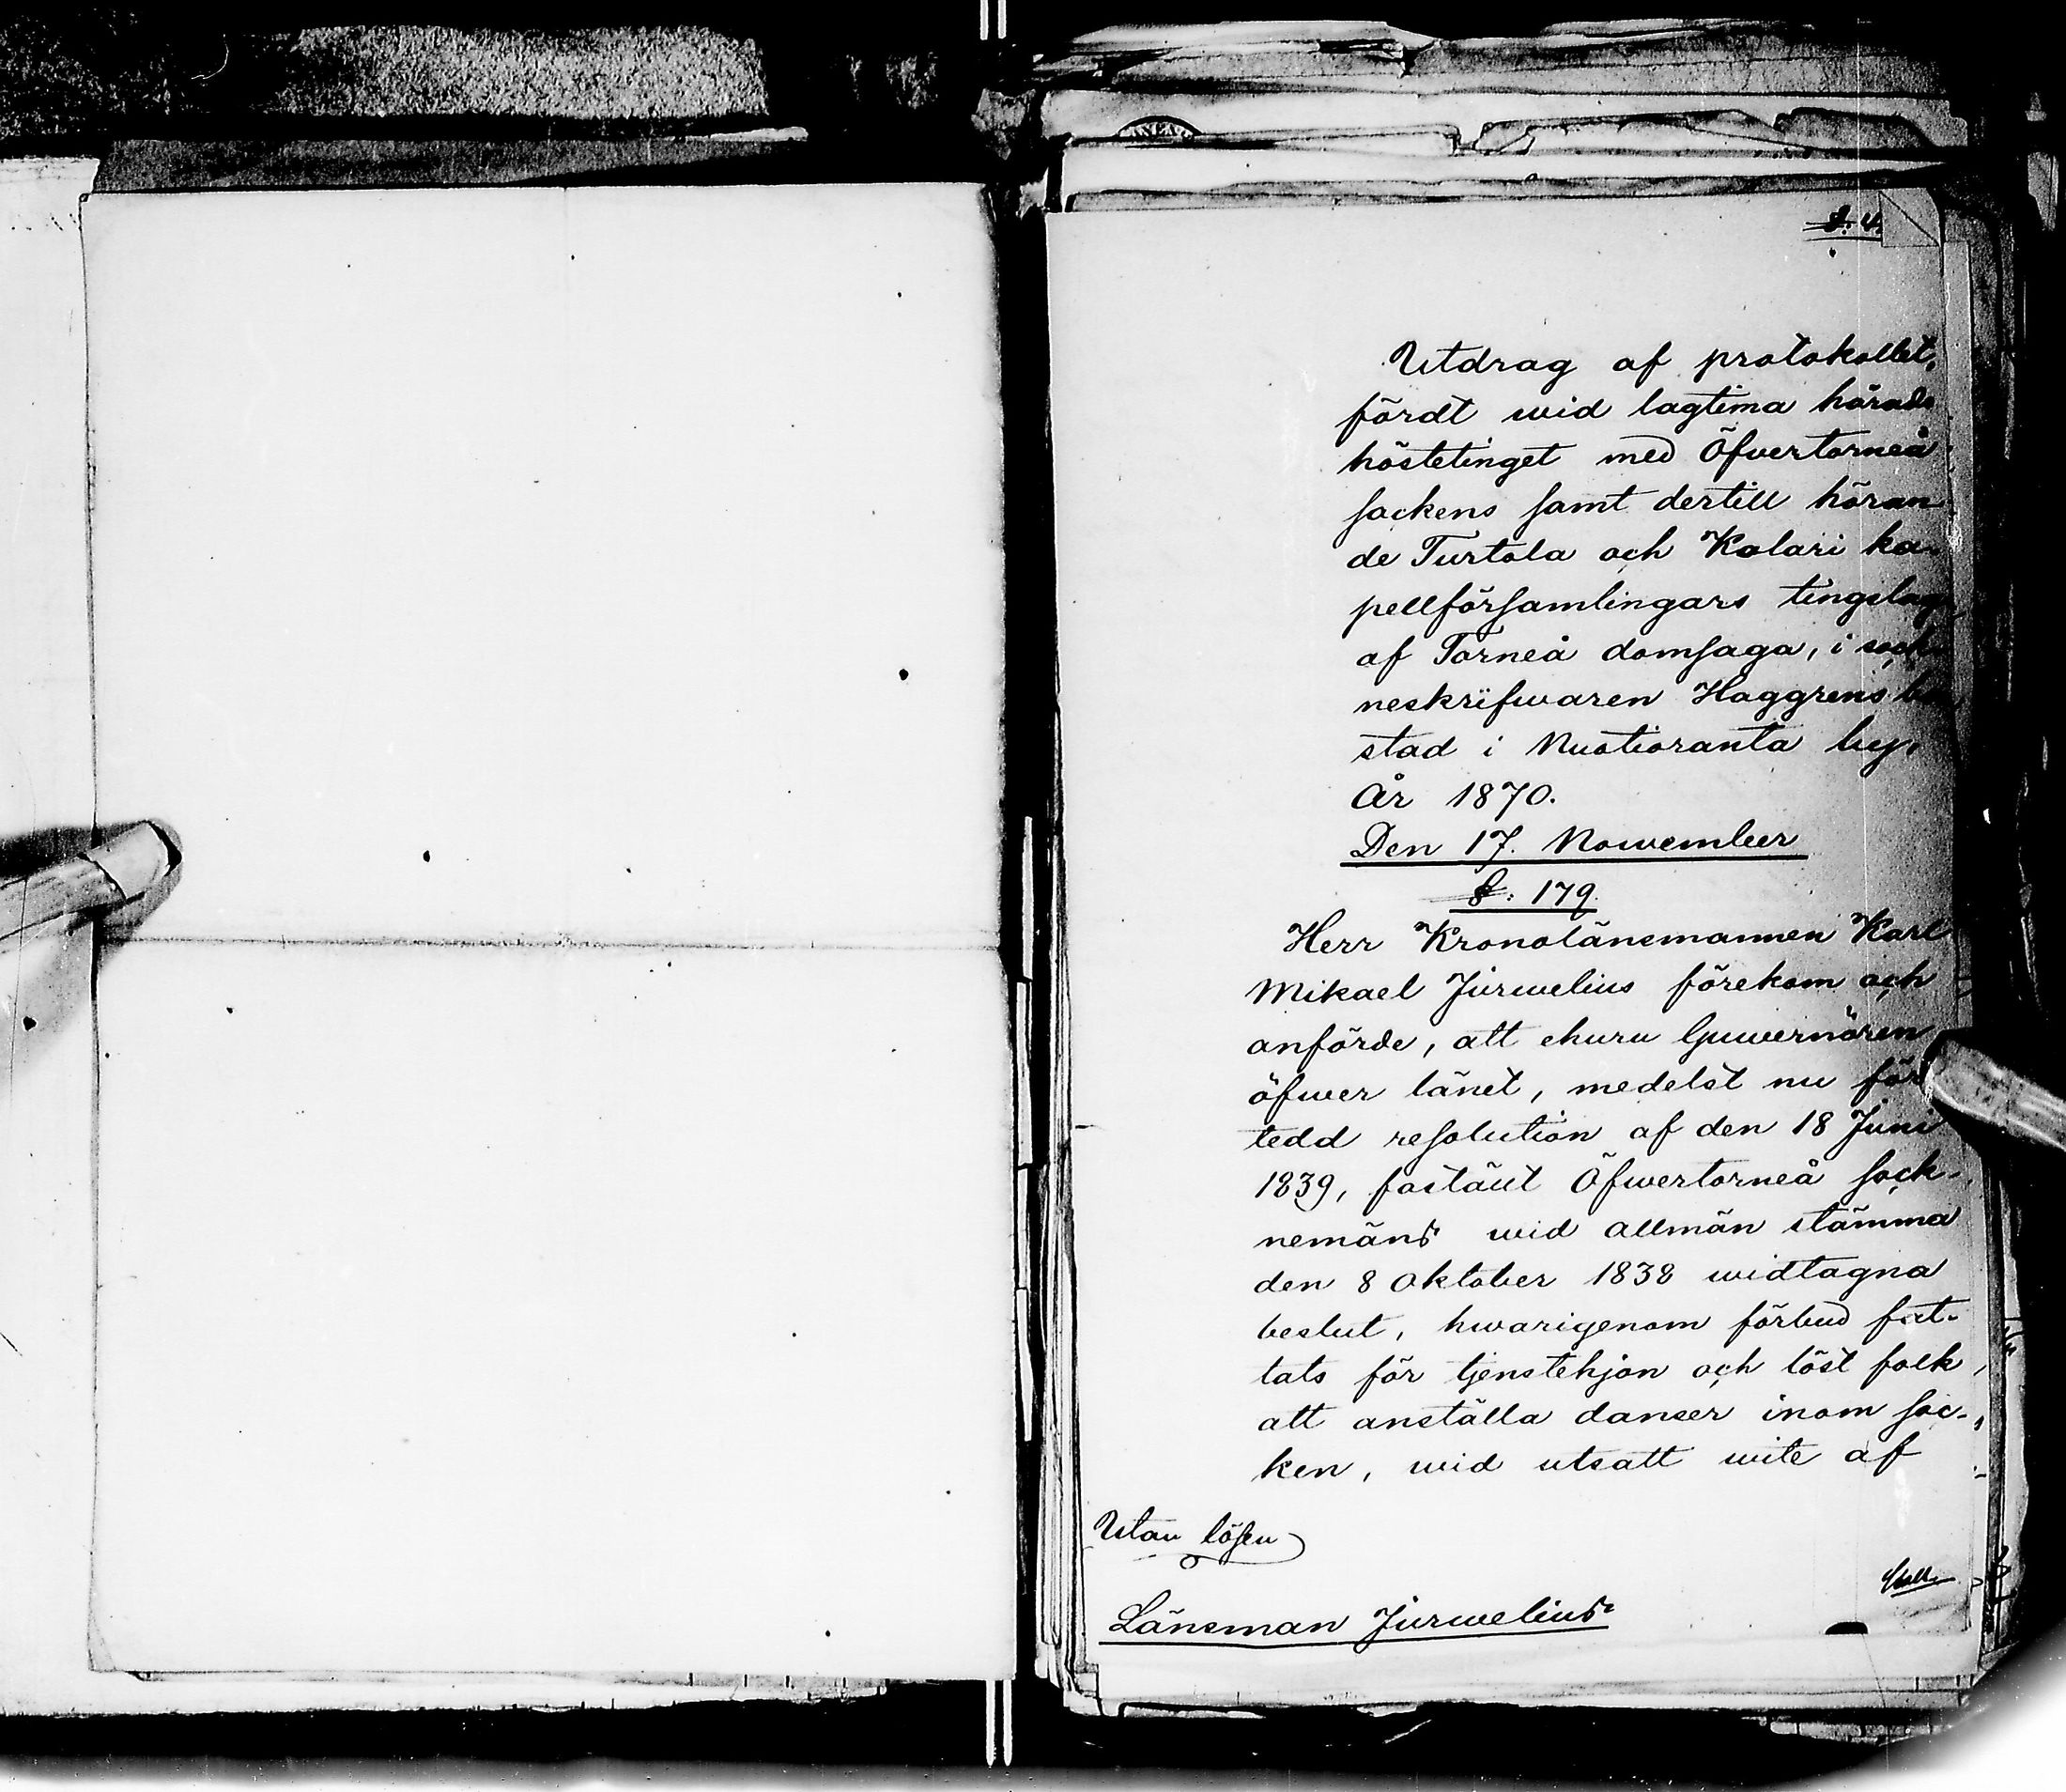 §. 4.
Utdrag af protokollet,
fördt wid lagtima härads
höstetinget med Öfwertorneå
sockens samt dertill höran
de Turtola och Kolari ka-
pellförsamlingars tingslag
af Torneå domsaga, i sock-
neskrifwaren Haggrens bo
stad i Nuotioranta by,
År 1870.
Den 17. Nowember
§. 179.
Herr Kronolänsmannen Karl
Mikael Jurwelius förekom och
anförde, att ehuru Guwernören
öfwer länet, medelst nu före
tedd resolution af den 18 Juni
1839, fastält Öfwertorneå sock-
nemäns wid allmän stämma
den 8 Oktober 1838 widtagna
beslut, hwarigenom förbud fat-
tats för tjenstehjon och löst folk,
att anställa danser inom soc-
ken, wid utsatt wite af
Utan lösen
Länsman Jurwelius